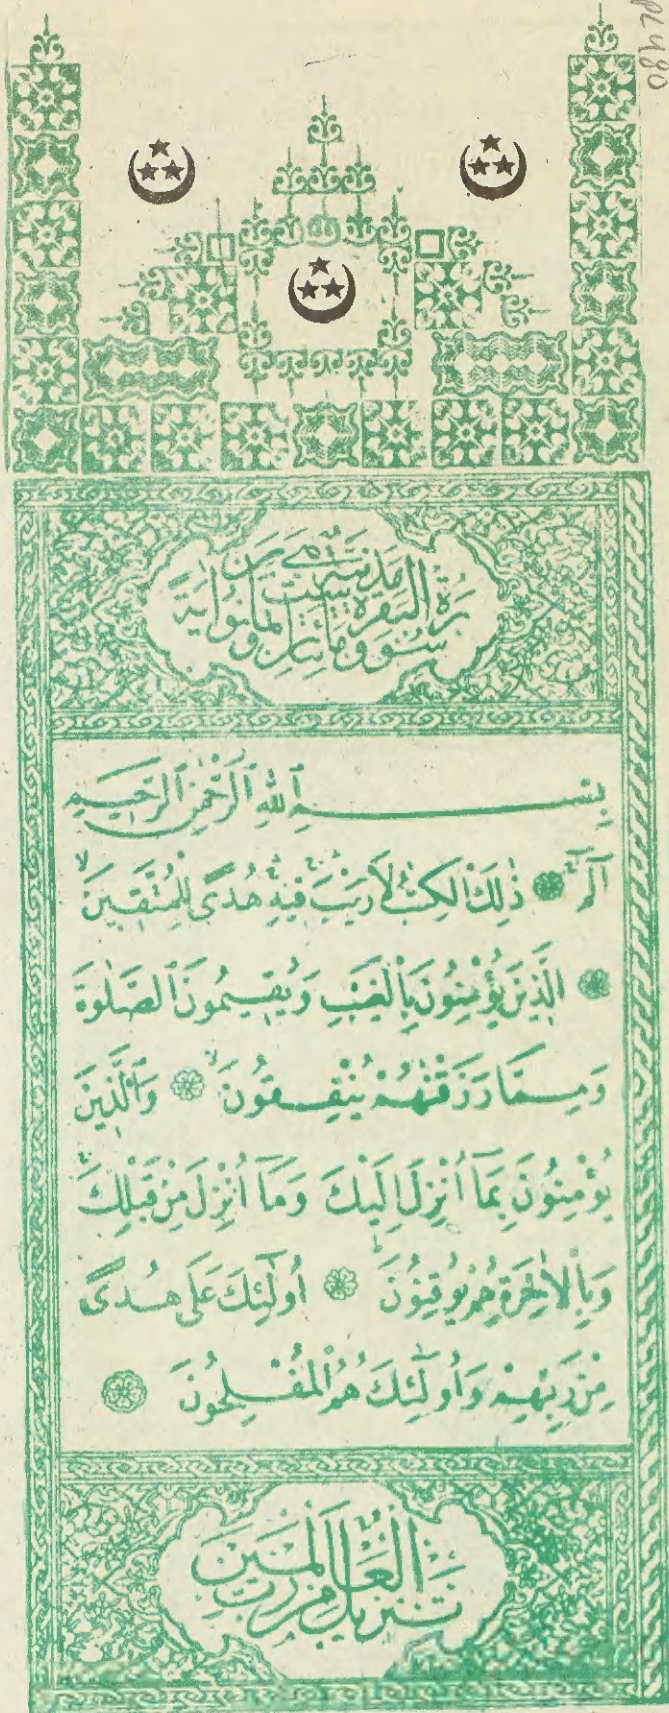 PL 480
سورة البقرة مدنية وهي مائتان وست وثمانون آية
بِسْمِ ٱللهِ ٱلرَّحْمٰنِ ٱلرَّحِيمِ
الٓمٓ ۞ ذٰلِكَ الْكِتٰبُ لَا رَيْبَ فِيهِ هُدًى لِلْمُتَّقِينَ
۞ الَّذِينَ يُؤْمِنُونَ بِالْغَيْبِ وَيُقِيمُونَ ٱلصَّلٰوةَ
وَمِمَّا رَزَقْنٰهُمْ يُنْفِقُونَ ۞ وَالَّذِينَ
يُؤْمِنُونَ بِمَآ أُنْزِلَ إِلَيْكَ وَمَآ أُنْزِلَ مِنْ قَبْلِكَ
وَبِالْاٰخِرَةِ هُمْ يُوقِنُونَ ۞ أُولٰٓئِكَ عَلٰى هُدًى
مِنْ رَبِّهِمْ وَأُولٰٓئِكَ هُمُ الْمُفْلِحُونَ ۞
تَنْزِيلٌ مِنْ رَبِّ الْعَالَمِينَ